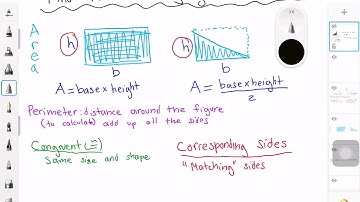 Area
h
h
b
b
A = base x height
A = base x height
2
Perimeter: distance around the figure
(to calculate) add up all the sides
Congruent (≅)
Same size and shape
Corresponding Sides
"Matching" sides